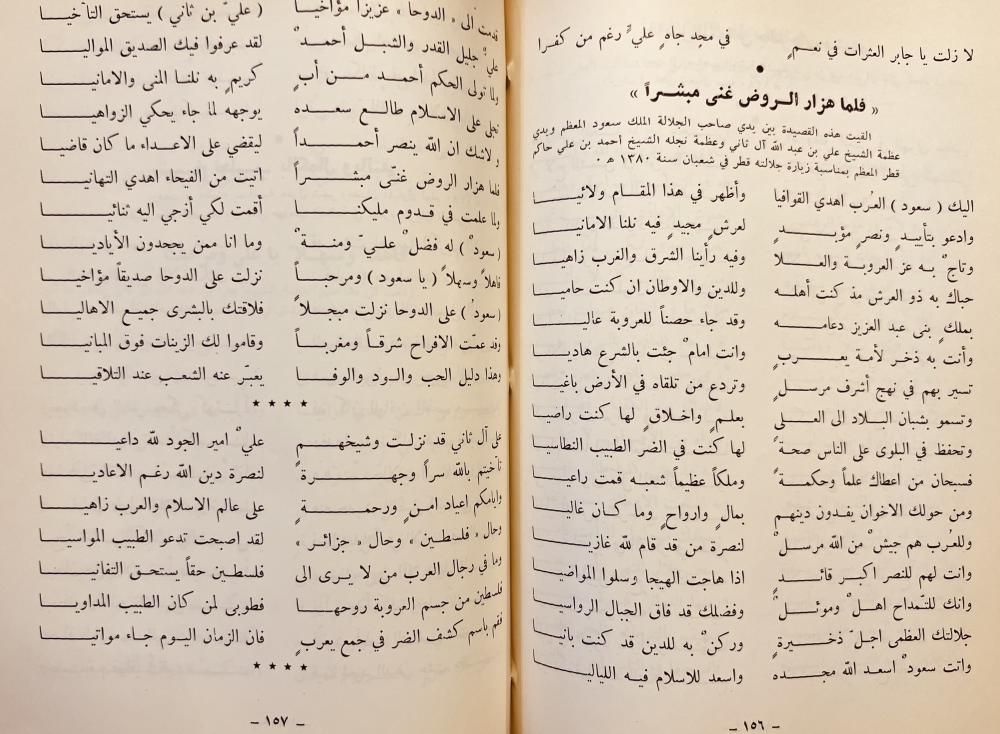 لا زلت يا جابر العثرات في نعمٍ في مجدِ جاهِ عليٍّ رغم من كفرا
« فلما هزار الروض غنى مبشراً »
القيت هذه القصيدة بين يدي صاحب الجلالة الملك سعود المعظم وبدي
عظمة الشيخ علي بن عبد الله آل ثاني وعظمة نجله الشيخ احمد بن علي حاكم
قطر المعظم بمناسبة زيارة جلالته قطر في شعبان سنة ١٣٨٠ هـ ٠
اليك ( سعود ) العُرب اهدي القوافيا وأظهر في هذا المقام ولائيا
وادعو بتأييدٍ ونصرٍ مؤبدٍ لعرشٍ مجيدٍ فيه نلنا الامانيا
وتاجٌ به عز العروبة والعلا وفيه رأينا الشرق والغرب زاهيا
حباك به ذو العرش مذ كنت أهله وللدين والاوطان ان كنت حاميا
بملكٍ بنى عبد العزيز دعامه وقد جاء حصناً للعروبة عاليا
وأنت به ذخر لأمة يعرب وانت امامٌ جئت بالشرع هاديا
تسير بهم في نهج أشرف مرسلٍ وتردع من تلقاه في الأرض باغيا
وتسمو بشبان البلاد الى العلى بعلمٍ واخلاقٍ لها كنت راضيا
وتحفظ في البلوى على الناس صحةً لها كنت في الضر الطبيب النطاسيا
فسبحان من اعطاك علماً وحكمةً وملكاً عظيماً شعبه قمت راعيا
ومن حولك الاخوان يفدون دينهم بمالٍ وارواحٍ وما كان غاليا
وللعُرب هم جيشٌ من الله مرسلٌ لنصرة من قد قام لله غازيا
وانت لهم للنصر اكبر قائدٍ اذا هاجت الهيجا وسلوا المواضيا
وانك للتمداح اهلٌ وموئلٌ وفضلك قد فاق الجبال الرواسيا
جلالتك العظمى اجلّ ذخيرةٍ وركنٌ به للدين قد كنت بانيا
وانت سعودٌ اسعد الله مجده واسعد للاسلام فيه اللياليا
– ١٥٦ –
قدمت الى « الدوحا » عزيزاً مؤاخيا ( عليّ بن ثاني ) يستحق التآخيا
عليٌ جليل القدر والشبل أحمدٌ لقد عرفوا فيك الصديق المواليا
ولما تولى الحكم أحمد من أبٍ كريمٍ به نلنا المنى والامانيا
تجلى على الاسلام طالع سعده يوجهه لما جاء يحكي الزواهيا
ولاشك ان الله ينصر أحمداً ليقضي على الاعداء ما كان قاضيا
فلما هزار الروض غنّى مبشراً اتيت من الفيحاء اهدي التهانيا
ولما علمت في قدوم مليكنا أقمت لكي أزجي اليه ثنائيا
( سعودٌ ) له فضلٌ عليّ ومنةٌ وما انا ممن يجحدون الأياديا
فاهلاً وسهلاً ( يا سعود ) ومرحباً نزلت على الدوحا صديقاً مؤاخيا
( سعودٌ ) على الدوحا نزلت مبجلاً فلاقتك بالبشرى جميع الاهاليا
وقد عمّت الافراح شرقاً ومغرباً وقاموا لك الزينات فوق المبانيا
وهذا دليل الحب والود والوفا يعبّر عنه الشعب عند التلاقيا
★ ★ ★ ★
على آل ثاني قد نزلت وشيخهم عليٌ امير الجود لله داعيا
تآخيتم بالله سراً وجهرةً لنصرة دين الله رغم الاعاديا
وايامكم اعياد امنٍ ورحمةٍ على عالم الاسلام والعرب زاهيا
وحال « فلسطين » وحال « جزائر » لقد اصبحت تدعو الطبيب المواسيا
وما في رجال العرب من لا يرى الى فلسطين حقاً يستحق التفانيا
فلسطين من جسم العروبة روحها فطوبى لمن كان الطبيب المداويا
فقم باسم كشف الضر في جمع يعربٍ فان الزمان اليوم جاء مواتيا
★ ★ ★ ★
– ١٥٧ –